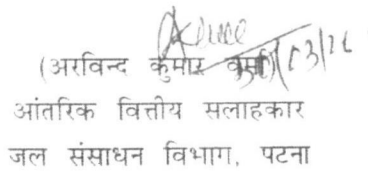 (अरविन्द कुमार वर्मा)
आंतरिक वित्तीय सलाहकार
जल संसाधन विभाग, पटना